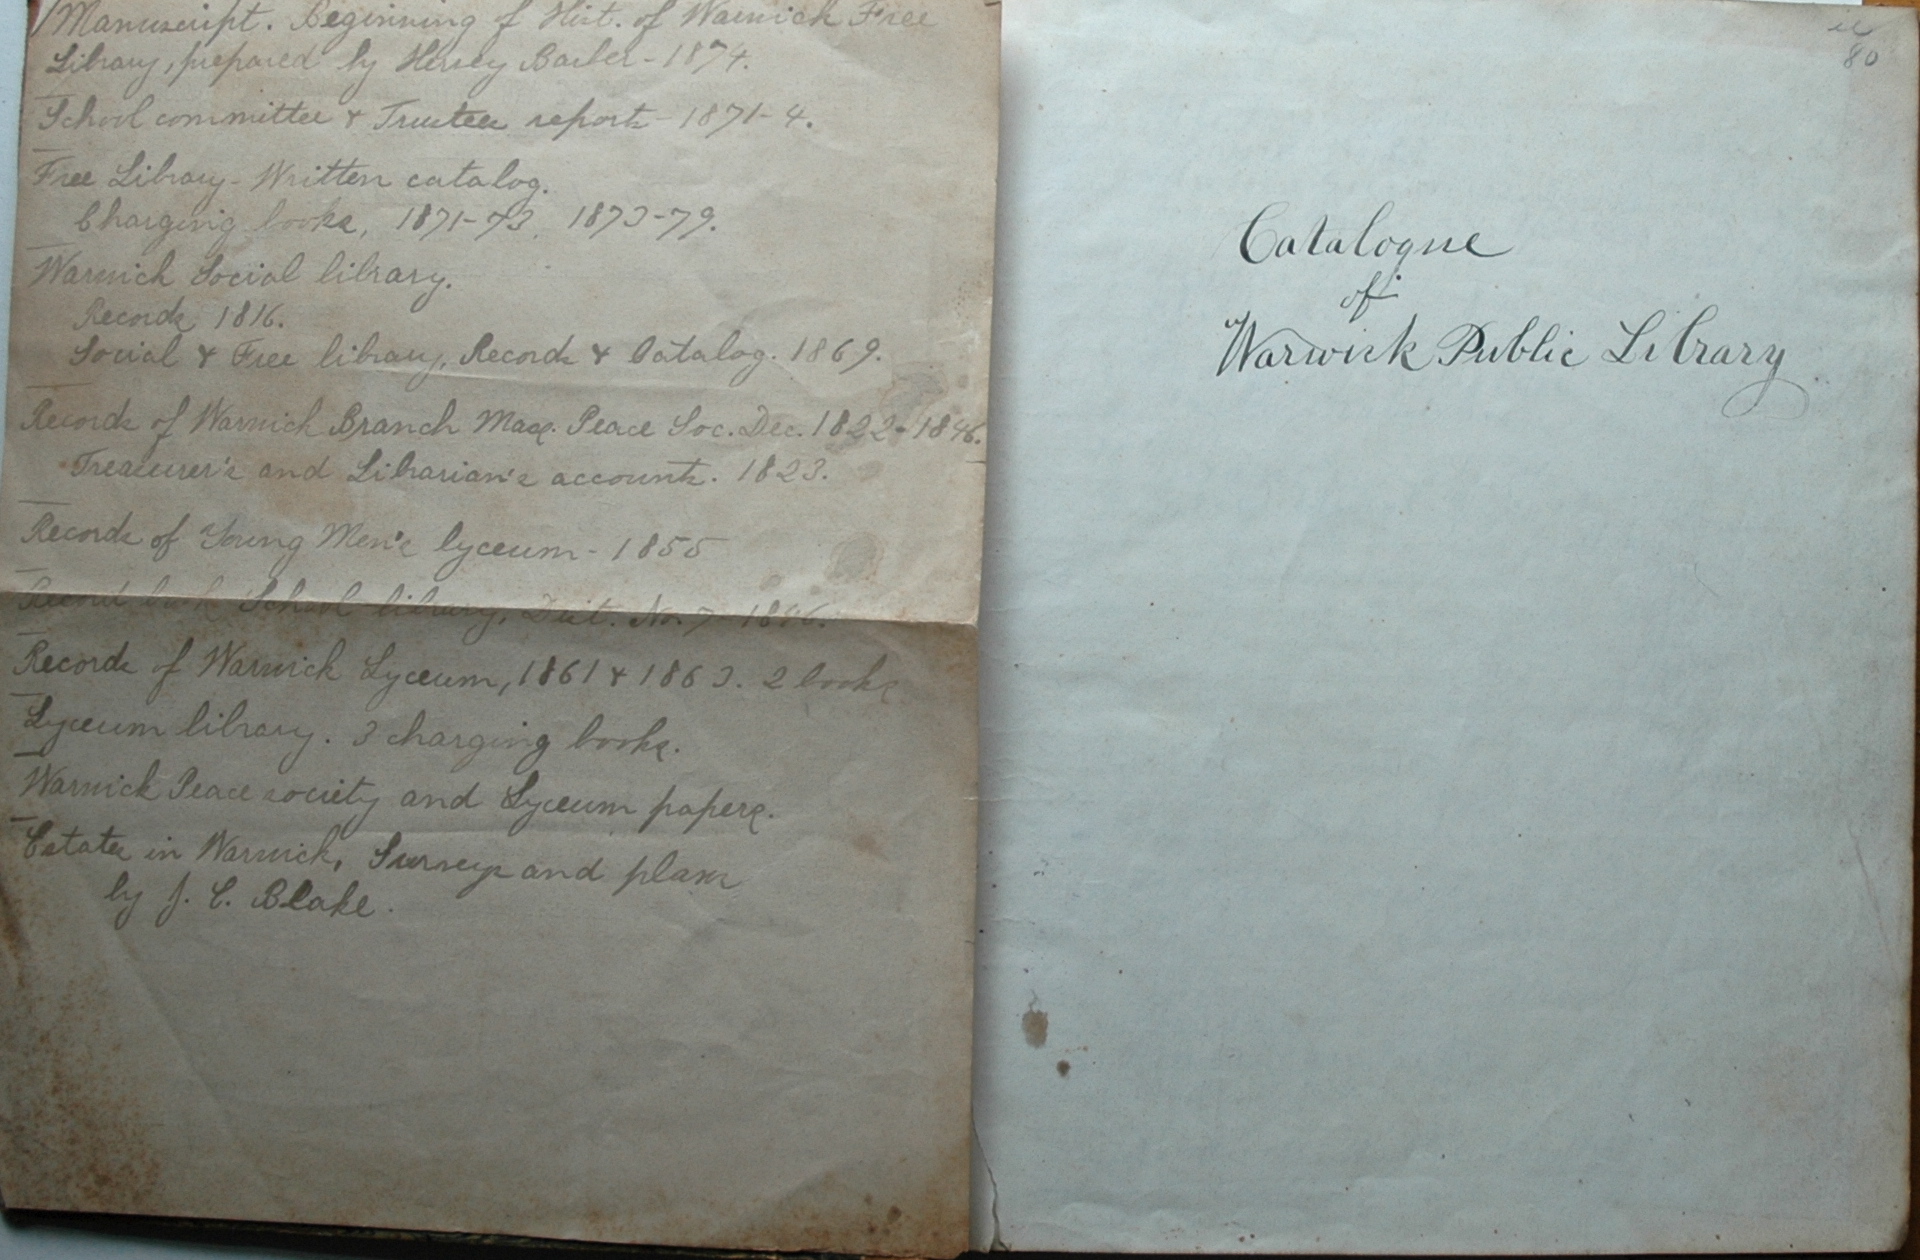 Manuscript. Beginning of Hist. of Warwick Free
Library, prepared by Hervey Barber - 1874.
School committee & Trustees reports - 1871-4.
Free Library - Written catalog.
Charging books, 1871-73, 1873-79.
Warwick Social library.
Records 1816.
Social & Free library, Records & Catalog. 1869.
Records of Warwick Branch Mass. Peace Soc. Dec. 1822-1846.
Treasurer's and Librarian's accounts. 1823.
Records of Young Men's lyceum - 1855
Record book School library, Dist. No. 7 - 1846.
Records of Warwick Lyceum, 1861 & 1863. 2 books
Lyceum library. 3 charging books.
Warwick Peace society and Lyceum papers.
Estates in Warwick, Surveys and plans
by J. C. Blake.
80
Catalogue
of
Warwick Public Library